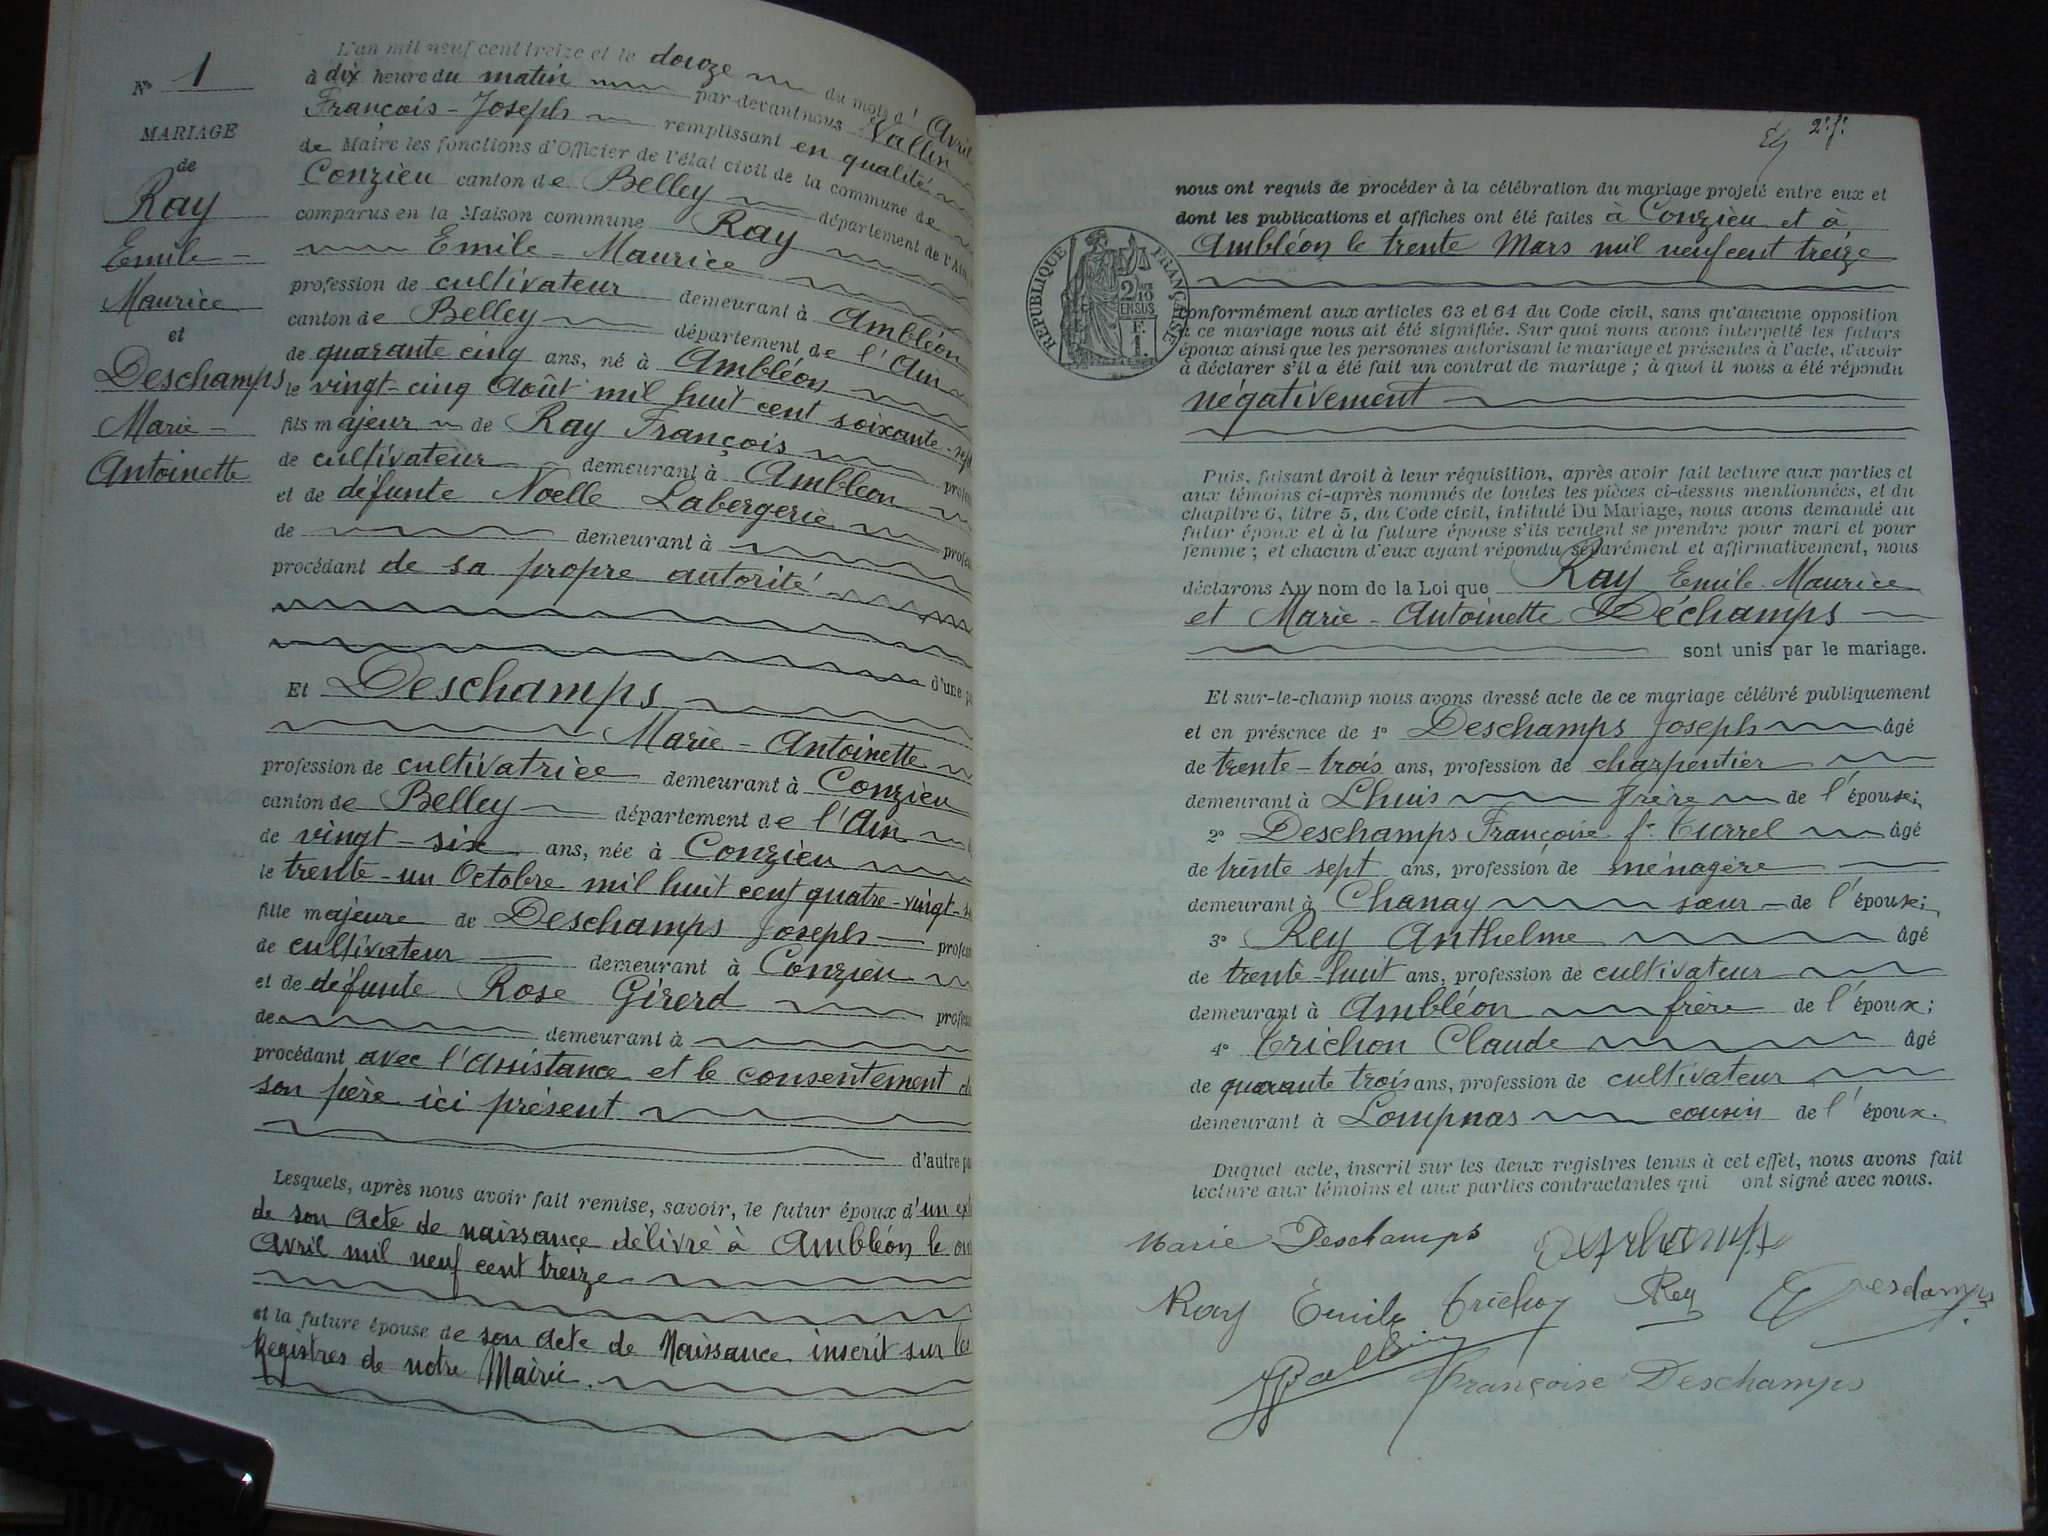 N° 1
MARIAGE
de
Ray
Emile
Maurice
et
Deschamps
Marie
Antoinette
L'an mil neuf cent treize et le douze du mois d'Avril
à dix heure du matin par-devant nous Vallin
François-Joseph remplissant en qualité
de Maire les fonctions d'Officier de l'état civil de la commune de
Conzieu canton de Belley département de l'Ain
comparus en la Maison commune Ray
Emile-Maurice
profession de cultivateur demeurant à Ambléon
canton de Belley département de l'Ain
de quarante cinq ans, né à Ambléon
le vingt-cinq Août mil huit cent soixante-sept
fils majeur de Ray François profes
de cultivateur demeurant à Ambléon
et de défunte Noëlle Labergerie profes
de demeurant à
procédant de sa propre autorité
d'une pa
Et Deschamps
Marie-Antoinette
profession de cultivatrice demeurant à Conzieu
canton de Belley département de l'Ain
de vingt-six ans, née à Conzieu
le trente-un Octobre mil huit cent quatre-vingt-
fille majeure de Deschamps Joseph profes
de cultivateur demeurant à Conzieu
et de défunte Rose Girerd profes
de demeurant à
procédant avec l'assistance et le consentement de
son père ici présent
d'autre pa
Lesquels, après nous avoir fait remise, savoir, le futur époux d'un ext
de son acte de naissance délivré à Ambléon le on
Avril mil neuf cent treize
et la future épouse de son acte de Naissance inscrit sur les
Registres de notre Mairie.
2e f.
nous ont requis de procéder à la célébration du mariage projeté entre eux et
dont les publications et affiches ont été faites à Conzieu et à
Ambléon le trente Mars mil neuf cent treize
RÉPUBLIQUE FRANÇAISE
2/10
EN SUS
F.
1.
conformément aux articles 63 et 64 du Code civil, sans qu'aucune opposition
à ce mariage nous ait été signifiée. Sur quoi nous avons interpellé les futurs
époux ainsi que les personnes autorisant le mariage et présentes à l'acte, d'avoir
à déclarer s'il a été fait un contrat de mariage ; à quoi il nous a été répondu
négativement
Puis, faisant droit à leur réquisition, après avoir fait lecture aux parties et
aux témoins ci-après nommés de toutes les pièces ci-dessus mentionnées, et du
chapitre 6, titre 5, du Code civil, intitulé Du Mariage, nous avons demandé au
futur époux et à la future épouse s'ils veulent se prendre pour mari et pour
femme ; et chacun d'eux ayant répondu séparément et affirmativement, nous
déclarons Au nom de la Loi que Ray Emile-Maurice
et Marie-Antoinette Déchamps
sont unis par le mariage.
Et sur-le-champ nous avons dressé acte de ce mariage célébré publiquement
et en présence de 1° Deschamps Joseph âgé
de trente-trois ans, profession de charpentier
demeurant à Lhuis frère de l'épouse;
2° Deschamps Françoise fe Turrel âgé
de trente sept ans, profession de ménagère
demeurant à Chanay sœur de l'épouse;
3° Rey Anthelme âgé
de trente-huit ans, profession de cultivateur
demeurant à Ambléon frère de l'époux;
4° Trichon Claude âgé
de quarante trois ans, profession de cultivateur
demeurant à Lompnas cousin de l'époux.
Duquel acte, inscrit sur les deux registres tenus à cet effet, nous avons fait
lecture aux témoins et aux parties contractantes qui ont signé avec nous.
Marie Deschamps Deschamps
Ray Émile Trichon Rey Deschamps
Vallin Françoise Deschamps